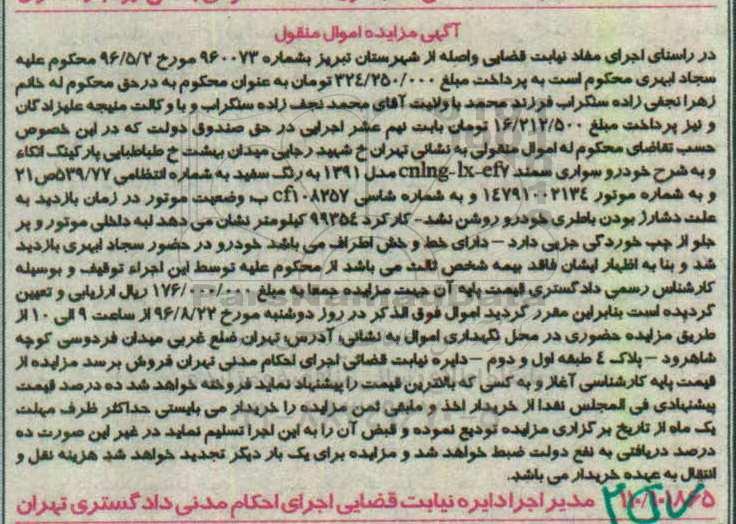 آگهی مزایده اموال منقول
در راستای اجرای مفاد نیابت قضایی واصله از شهرستان تبریز بشماره ۹۶۰۰۷۳ مورخ ۹۶/۵/۲ محکوم علیه
سجاد ابهری محکوم است به پرداخت مبلغ ۳۲٤/۲۵۰/۰۰۰ تومان به عنوان محکوم به درحق محکوم له خانم
زهرا نجفی زاده سنگراب فرزند محمد با ولایت آقای محمد نجف زاده سنگراب و با وکالت ملیحه علیزادگان
و نیز پرداخت مبلغ ۱۶/۲۱۲/۵۰۰ تومان بابت نیم عشر اجرایی در حق صندوق دولت که در این خصوص
حسب تقاضای محکوم له اموال منقولی به نشانی تهران خ شهید رجایی میدان بهشت خ طباطبایی پارکینگ اتکاء
و به شرح خودرو سواری سمند cnlng-lx-ef7 مدل ۱۳۹۱ به رنگ سفید به شماره انتظامی ۵۳۹/۷۷ص۲۱
و به شماره موتور ۱٤۷۹۱۰۰۲۱۳٤ و به شماره شاسی cf۱۰۸۲۵۷ ب، وضعیت موتور در زمان بازدید به
علت دشارژ بودن باطری خودرو روشن نشد- کارکرد ۹۹۳۵٤ کیلومتر نشان می دهد لبه داخلی موتور و پر
جلو از چپ خوردگی جزیی دارد – دارای خط و خش اطراف می باشد خودرو در حضور سجاد ابهری بازدید
شد و بنا به اظهار ایشان فاقد بیمه شخص ثالث می باشد از محکوم علیه توسط این اجراء توقیف و بوسیله
کارشناس رسمی دادگستری قیمت پایه آن جهت مزایده جمعا به مبلغ ۱۷۶/۰۰۰/۰۰۰ ریال ارزیابی و تعیین
گردیده است بنابراین مقرر گردید اموال فوق الذکر در روز دوشنبه مورخ ۹۶/۸/۲۲ از ساعت ۹ الی ۱۰ از
طریق مزایده حضوری در محل نگهداری اموال به نشانی: آدرس: تهران ضلع غربی میدان فردوسی کوچه
شاهرود – پلاک ٤ طبقه اول و دوم – دایره نیابت قضائی اجرای احکام مدنی تهران فروش برسد مزایده از
قیمت پایه کارشناسی آغاز و به کسی که بالاترین قیمت را پیشنهاد نماید فروخته خواهد شد ده درصد قیمت
پیشنهادی فی المجلس نقدا از خریدار اخذ و مابقی ثمن مزایده را خریدار می بایستی حداکثر ظرف مهلت
یک ماه از تاریخ برگزاری مزایده تودیع نموده و قبض آن را به این اجرا تسلیم نماید در غیر این صورت ده
درصد دریافتی به نفع دولت ضبط خواهد شد و مزایده برای یک بار دیگر تجدید خواهد شد هزینه نقل و
انتقال به عهده خریدار می باشد.
مدیر اجرا دایره نیابت قضایی اجرای احکام مدنی دادگستری تهران
ParsNamadData